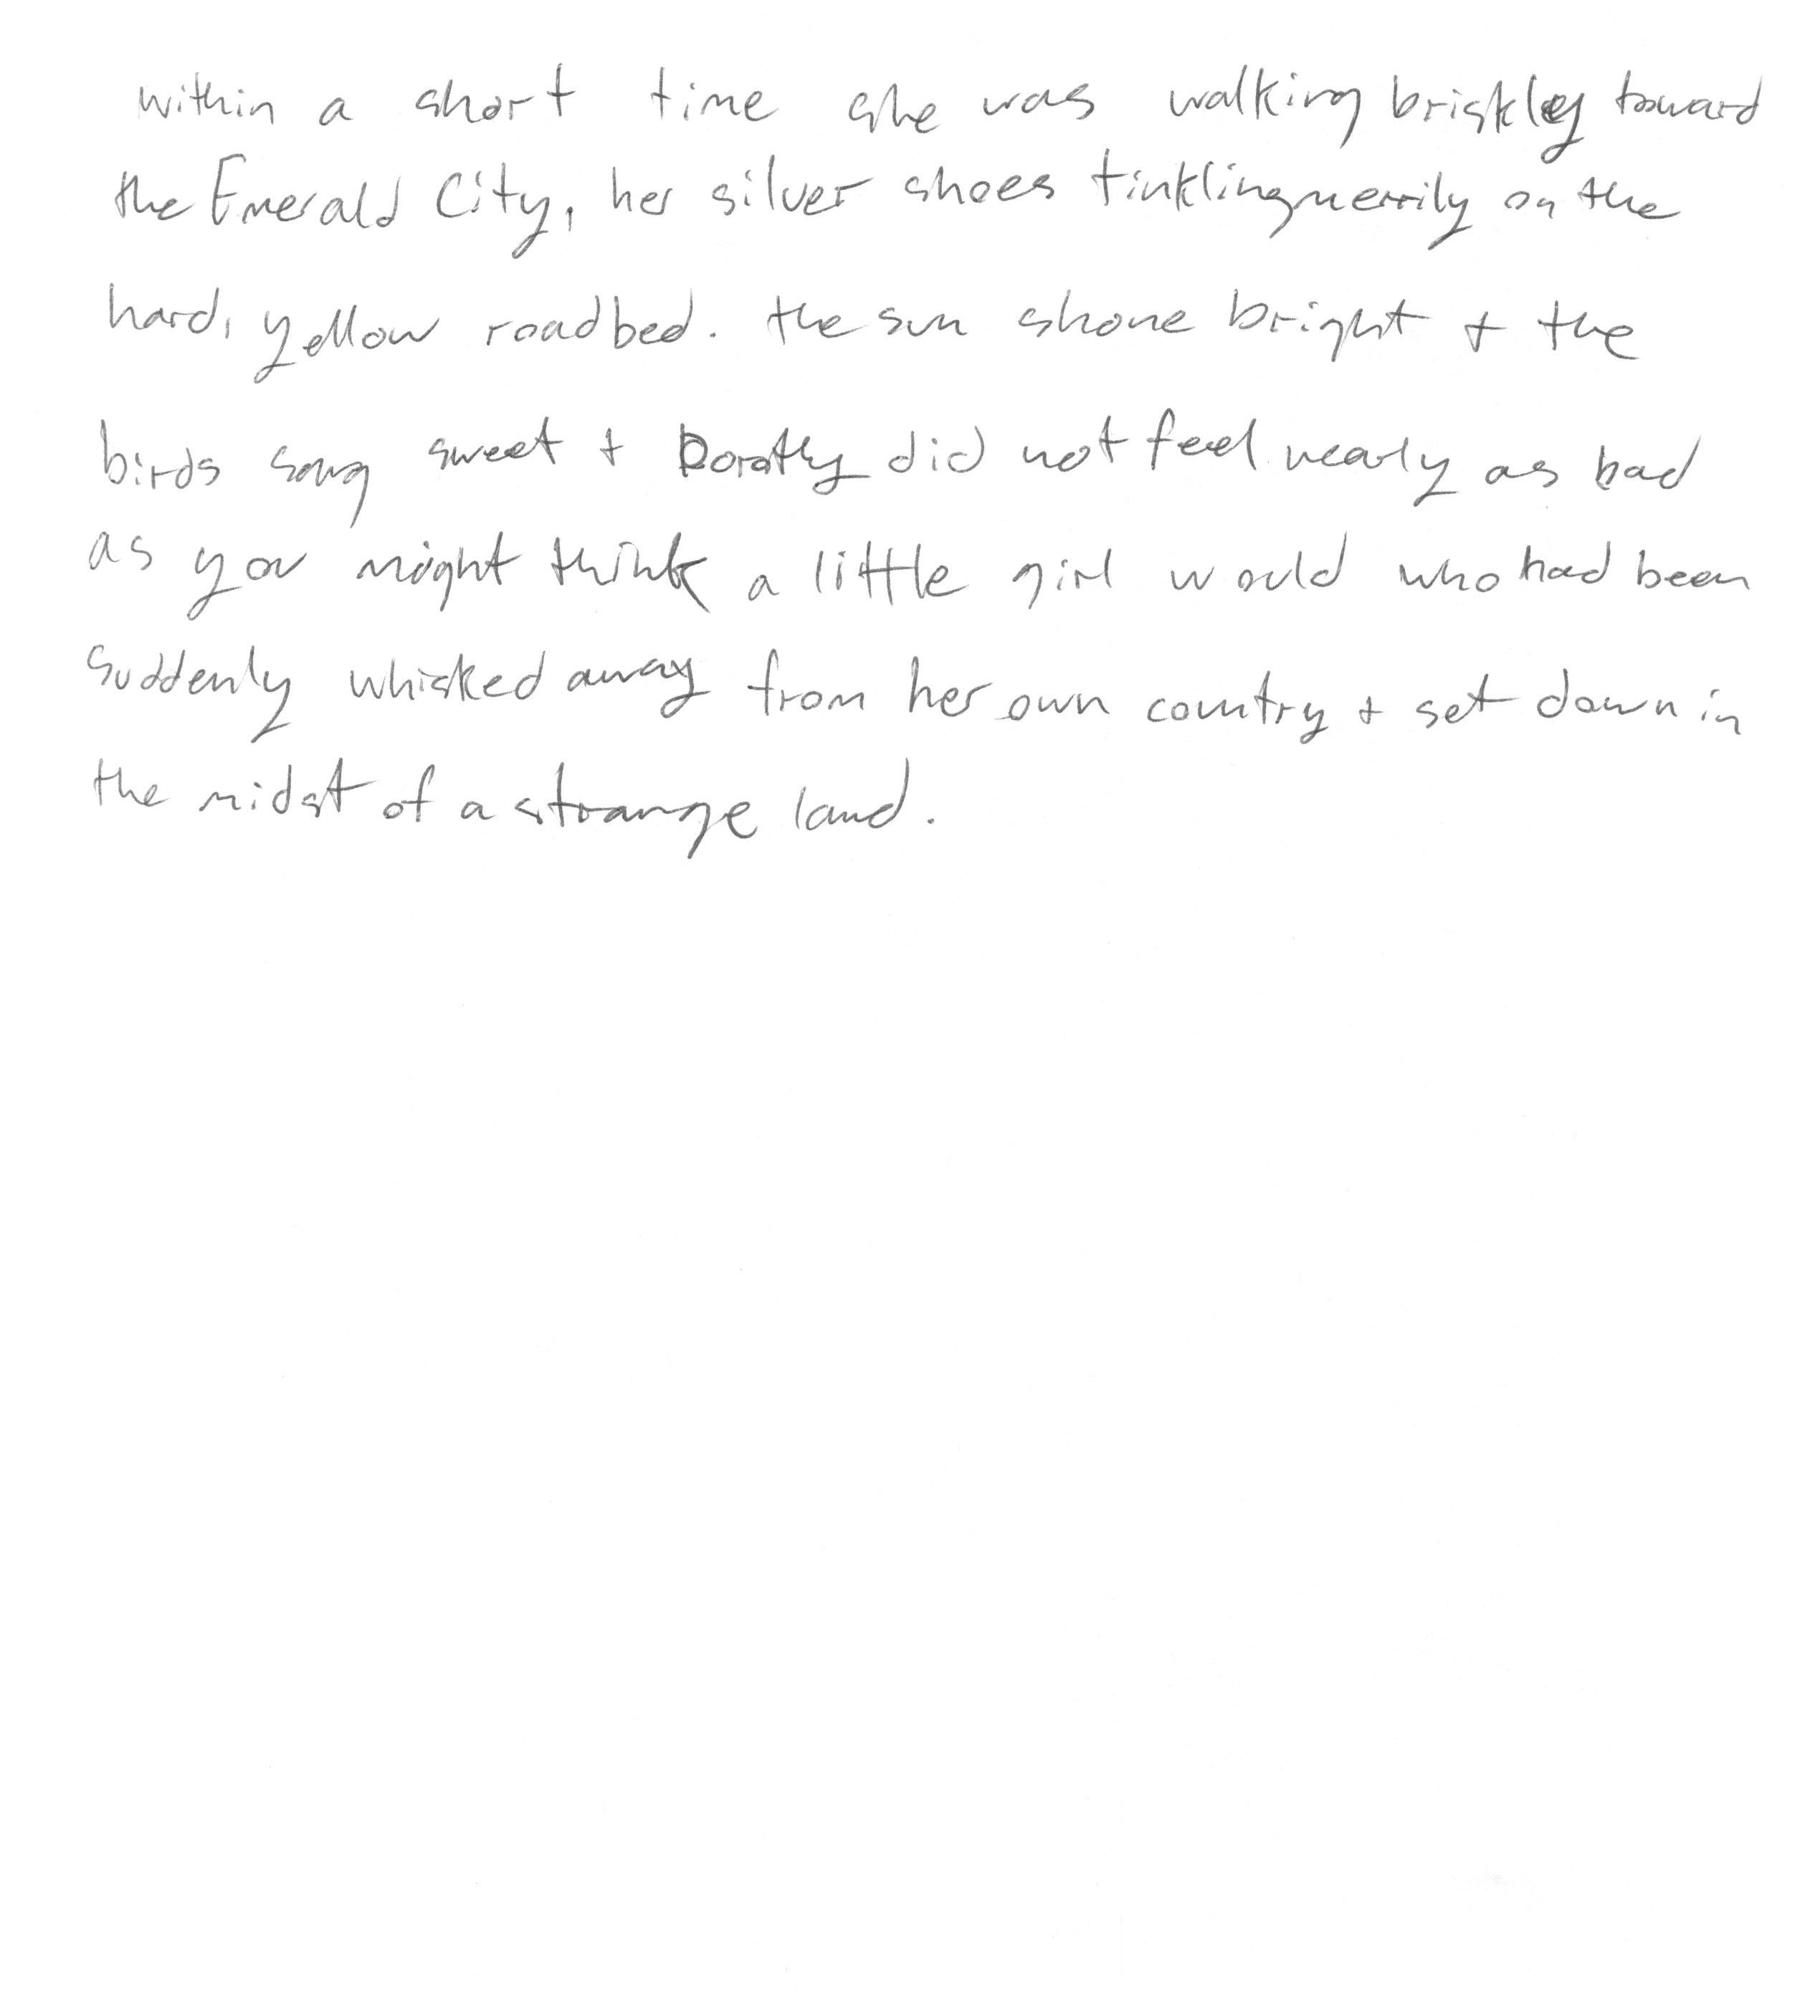 within a short time she was walking briskley toward
the Emerald City, her silver shoes tinkling merrily on the
hard, yellow roadbed. the sun shone bright + the
birds sang sweet + Dorothy did not feel nearly as bad
as you might think a little girl would who had been
suddenly whisked away from her own country + set down in
the midst of a strange land.